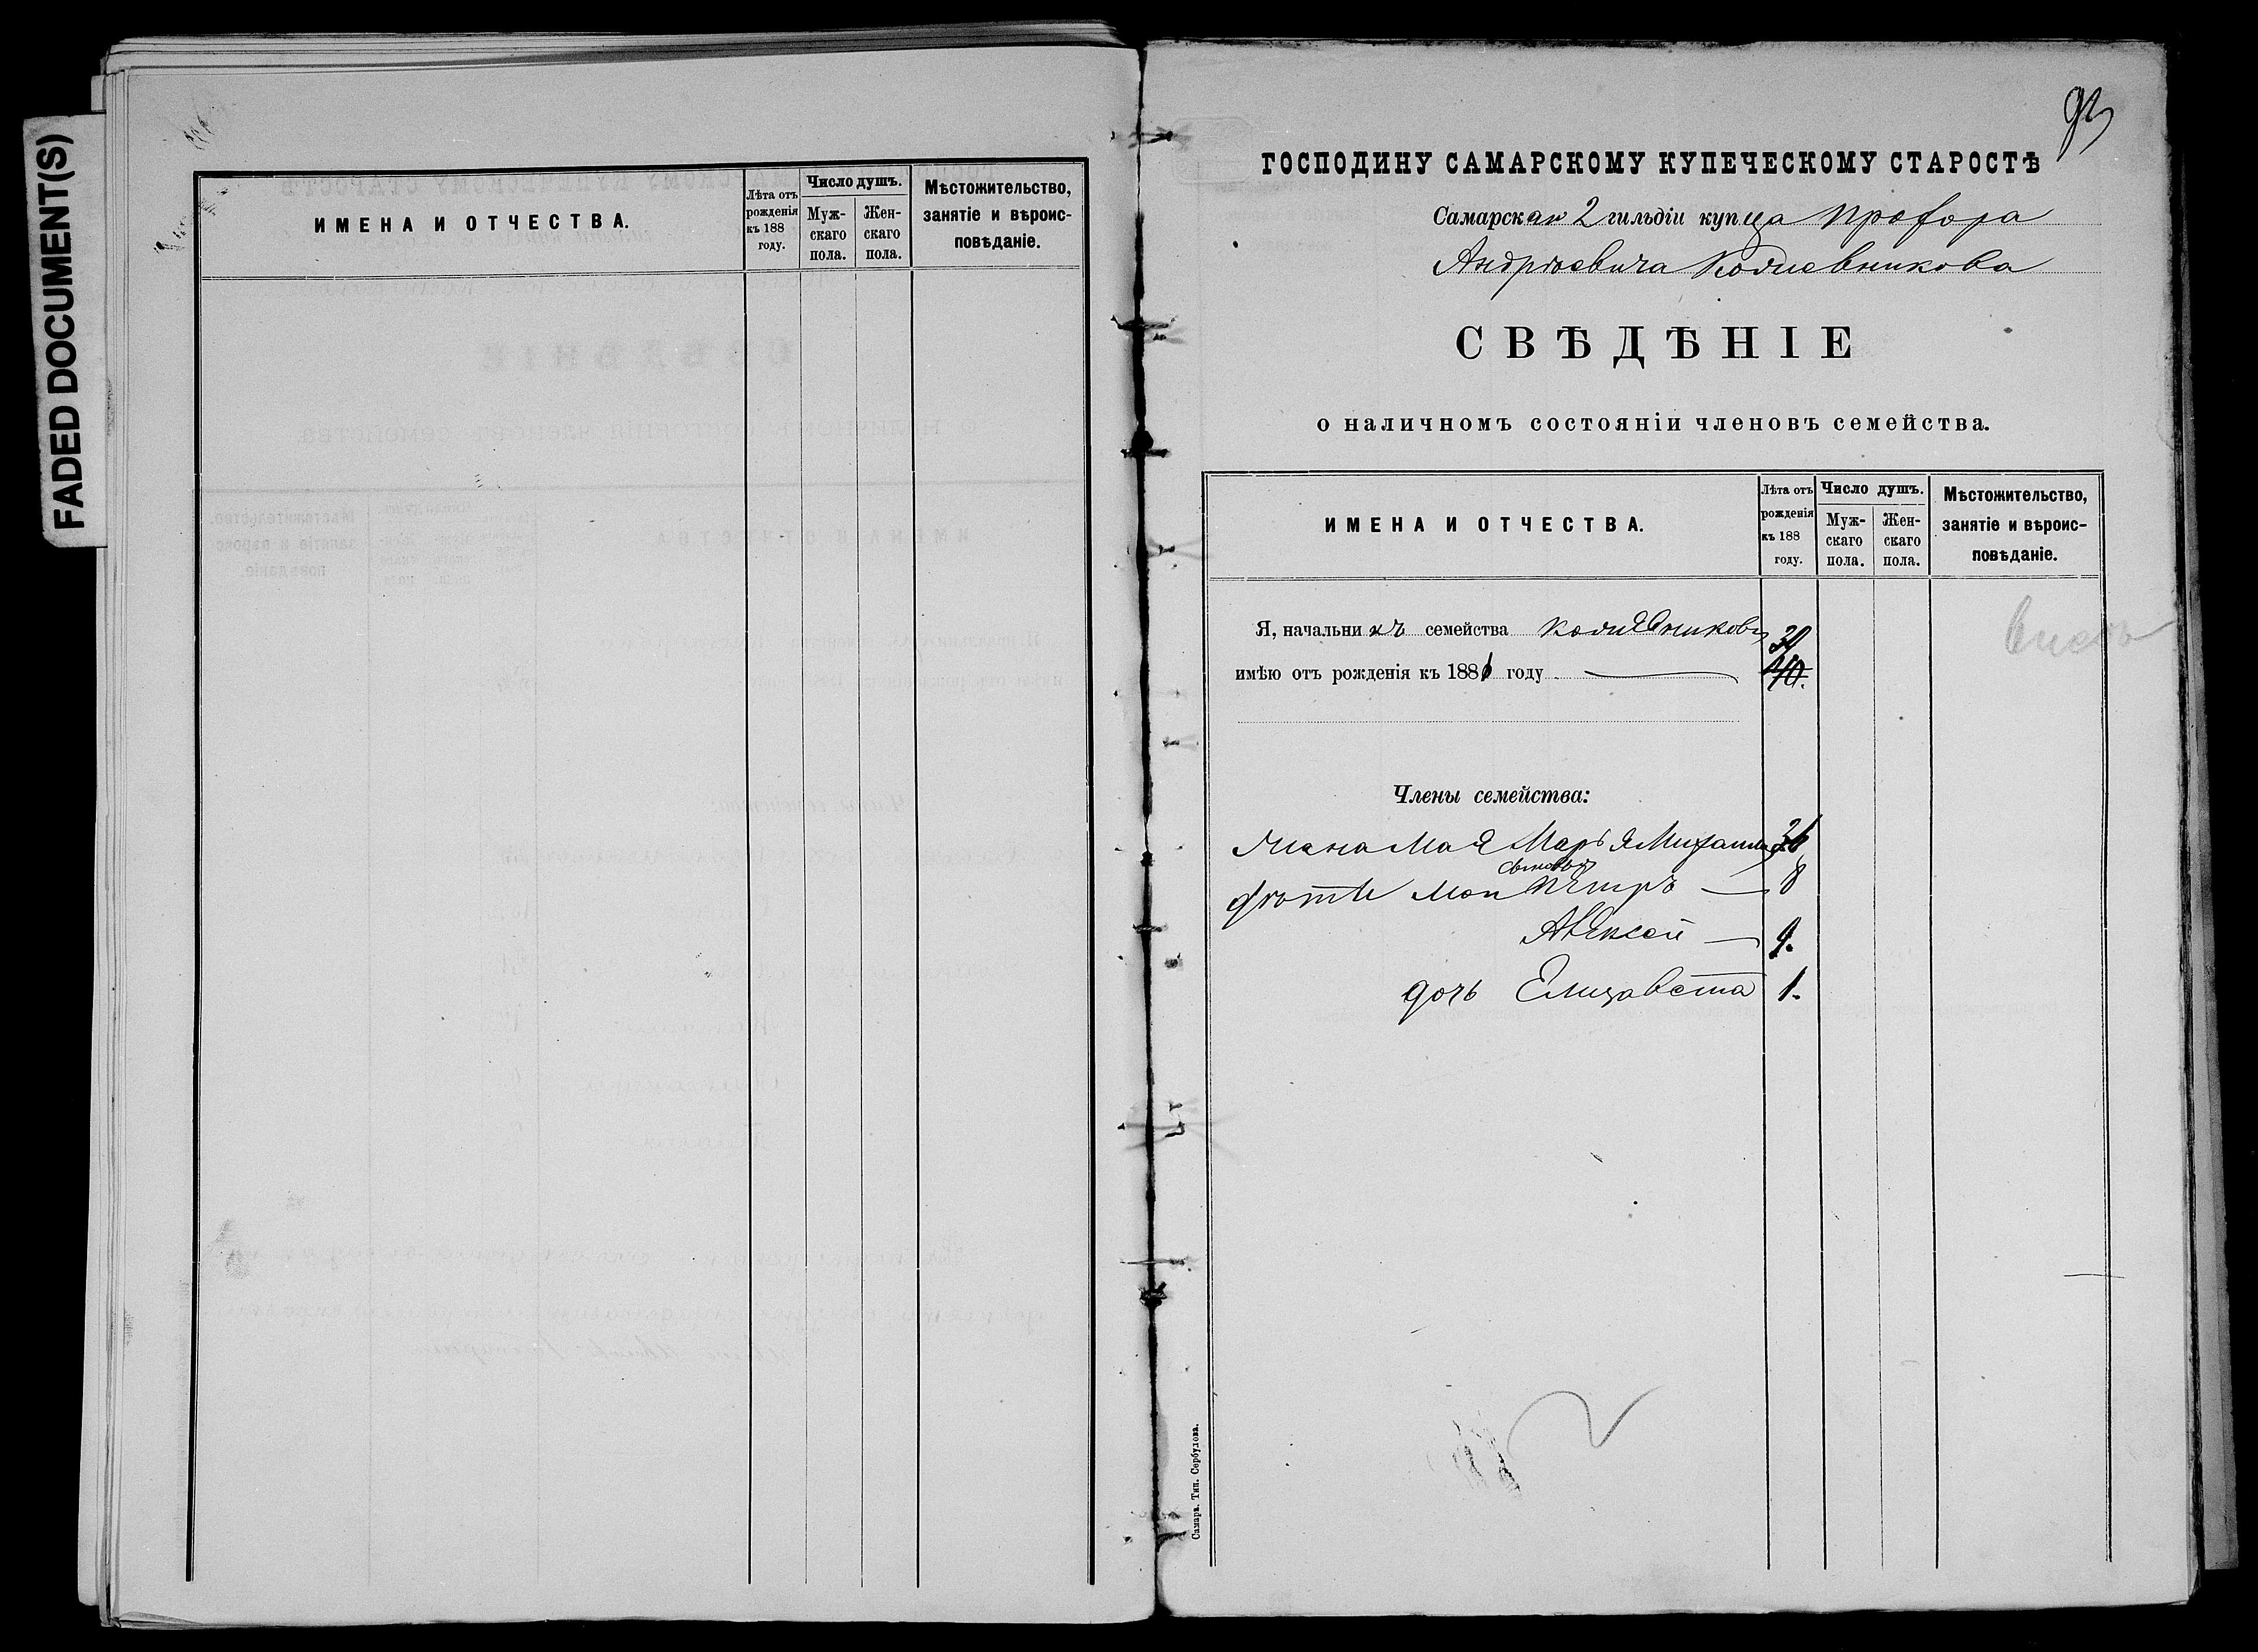 FADED DOCUMENT(S)
ИМЕНА И ОТЧЕСТВА.
Лѣта отъ рожденія къ 188 году.
Число душъ.
Мужскаго пола.
Женскаго пола.
Мѣстожительство, занятіе и вѣроисповѣданіе.
ГОСПОДИНУ САМАРСКОМУ КУПЕЧЕСКОМУ СТАРОСТѢ
Самарскаго 2 гильдіи купца Прохора
Андрѣевича Кожевникова
СВѢДѢНІЕ
о наличномъ состояніи членовъ семейства.
ИМЕНА И ОТЧЕСТВА.
Лѣта отъ рожденія къ 188 году.
Число душъ.
Мужскаго пола.
Женскаго пола.
Мѣстожительство, занятіе и вѣроисповѣданіе.
Я, начальникъ семейства Кожевниковъ 39
имѣю отъ рожденія къ 1881 году 40.
Члены семейства:
жена моя Марья Михаил
сыновья
дѣти мои Петръ — 8
Алексей —
дочь Елизавета 1.
Самара. Тип. Сербулова.